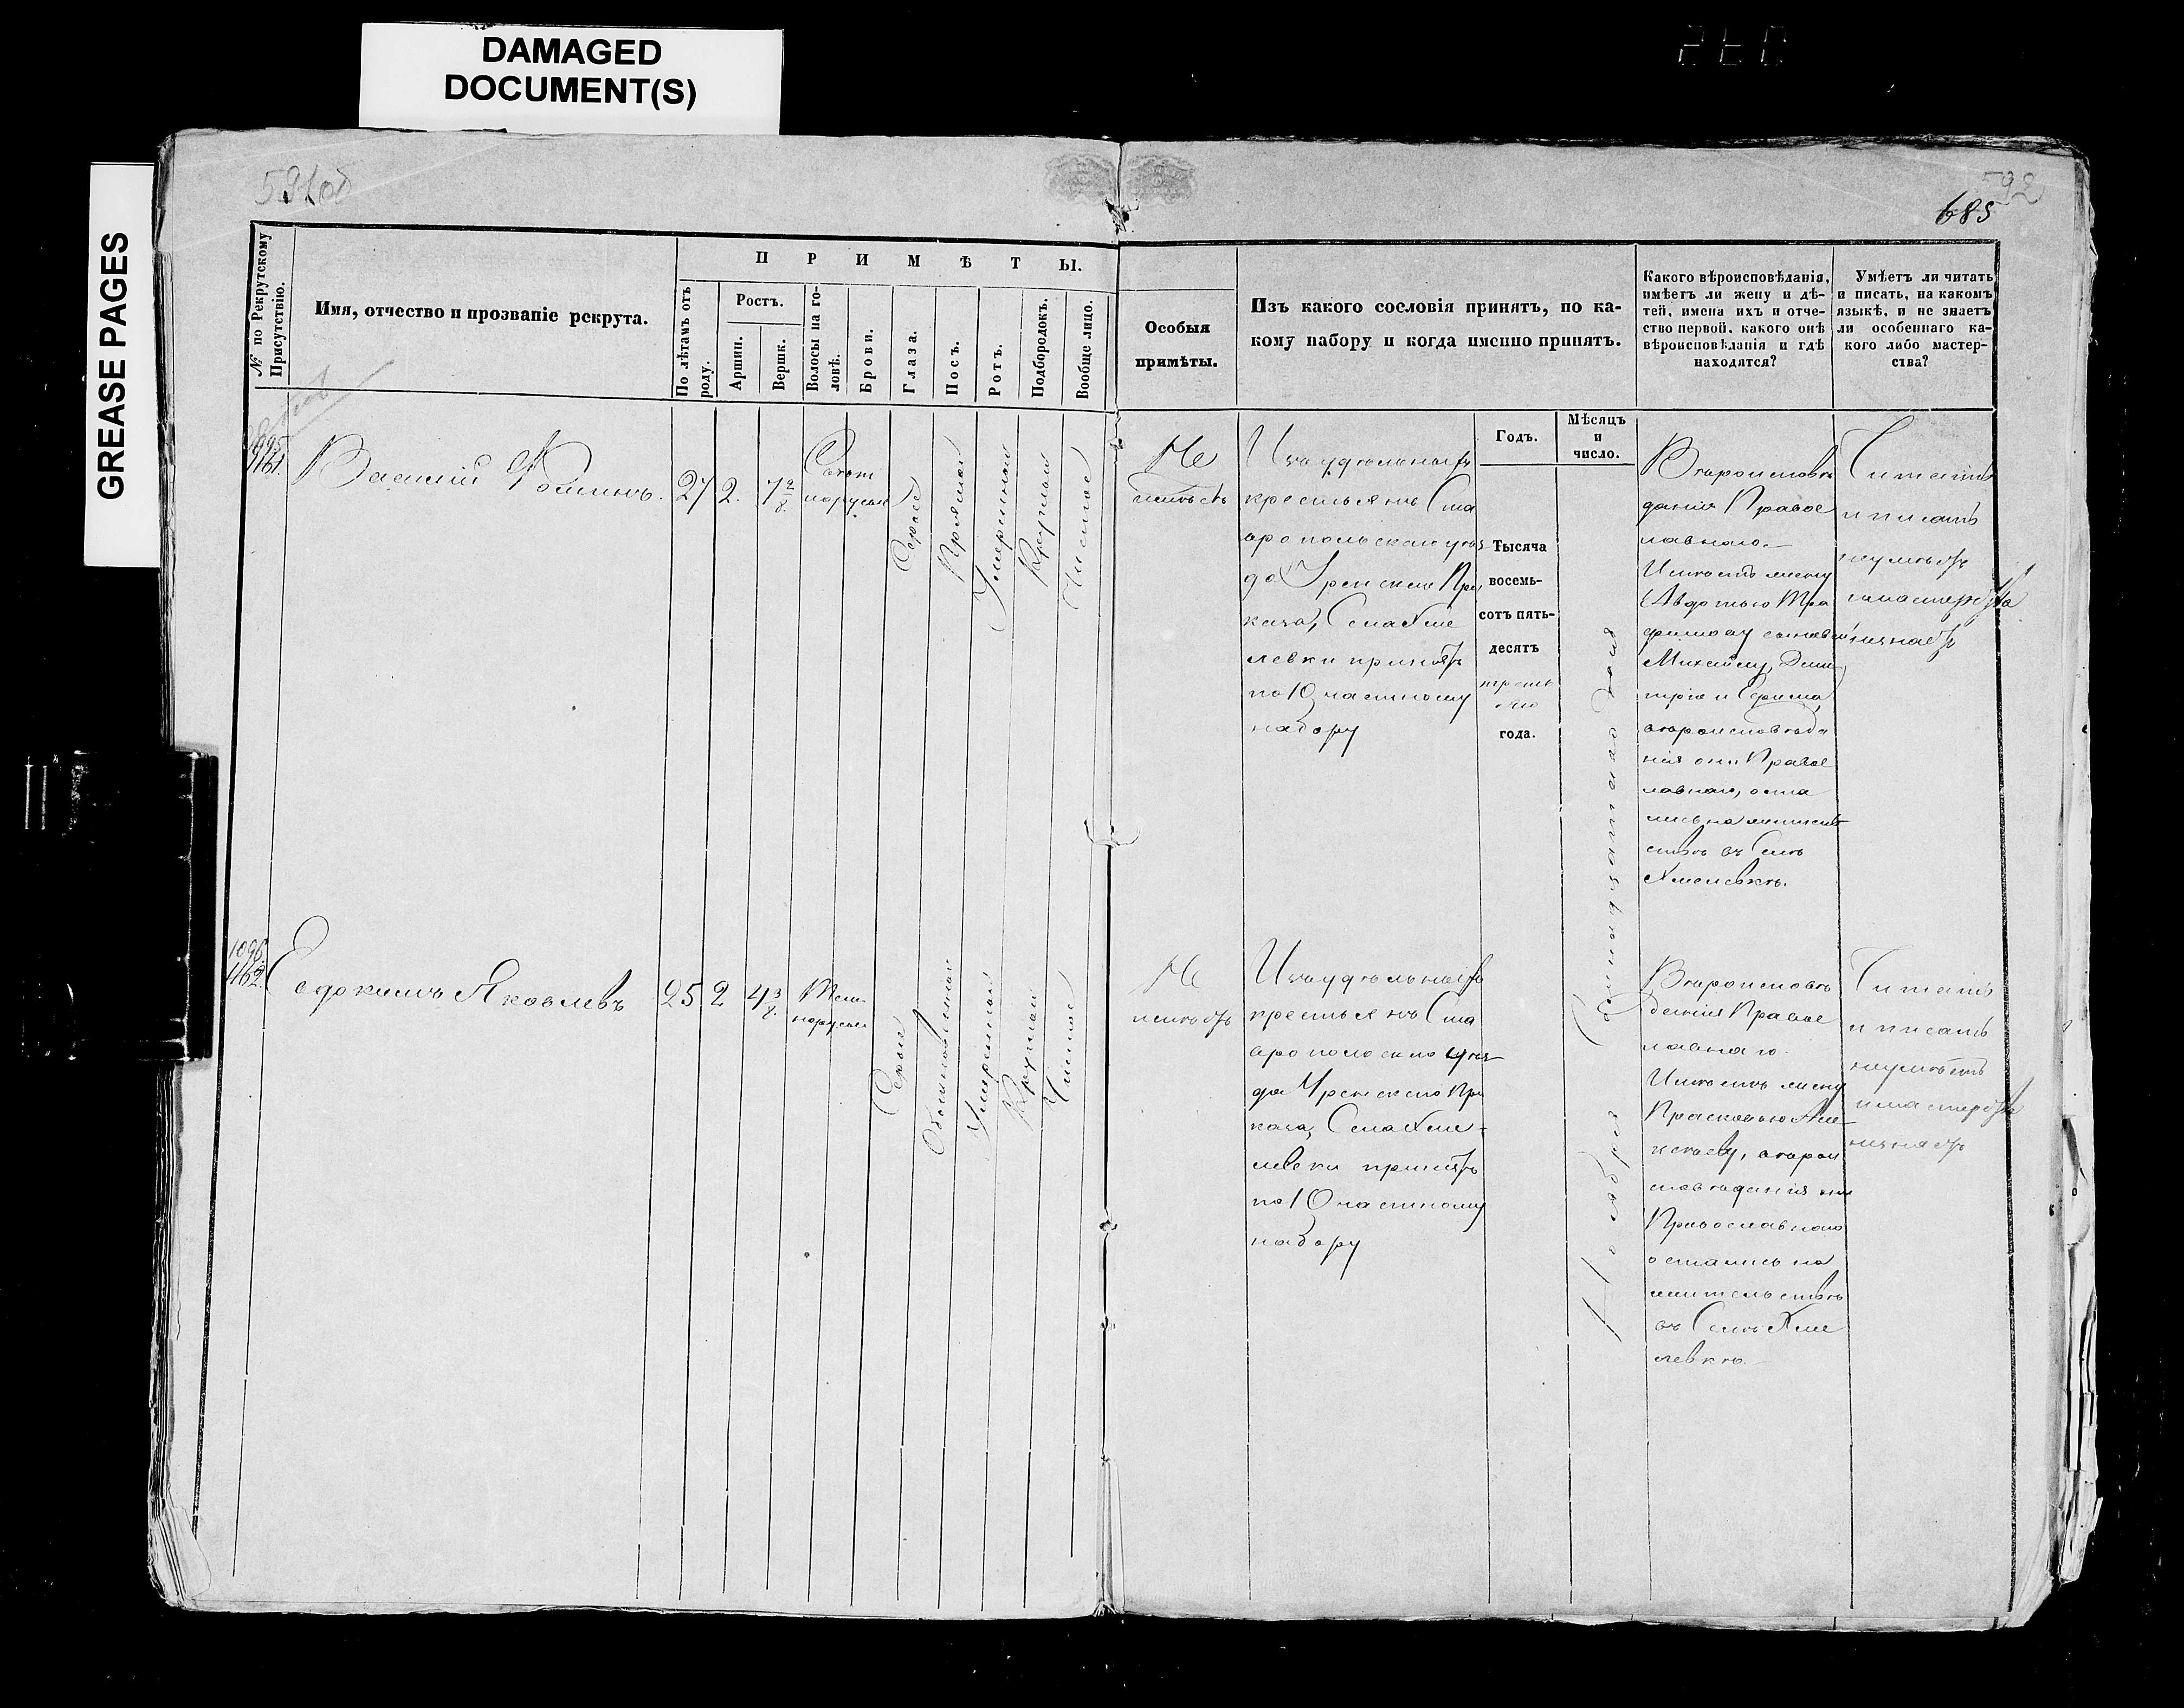 DAMAGED
DOCUMENT(S)
GREASE PAGES
592
685
№ по Рекрутскому
Присутствію.
Имя, отчество и прозваніе рекрута.
ПРИМѢТЫ.
По лѣтамъ отъ
роду.
Ростъ.
Аршин.
Вершк.
Волосы на го-
ловѣ.
Брови.
Глаза.
Носъ.
Ротъ.
Подбородокъ.
Вообще лицо.
Особыя
примѣты.
Изъ какого сословія принятъ, по ка-
кому набору и когда именно принятъ.
Какого вѣроисповѣданія,
имѣетъ ли жену и дѣ-
тей, имена ихъ и отче-
ство первой, какого онѣ
вѣроисповѣланія и гдѣ
находятся?
Умѣетъ ли читать
и писать, на какомъ
языкѣ, и не знаетъ
ли особеннаго ка-
кого либо мастер-
ства?
Годъ.
Мѣсяцъ
и
число.
1095
1161
Василій
27
2.
7 2/8
Свѣт
лорусые
Сѣрые
Прямой
Умѣренный
Круглый
Чистое
Не
имѣетъ
Изъ удѣльныхъ
крестьянъ Ста
вропольскаго уѣз
да Уренскаго При
каза, Села Хме
левки принятъ
по 10 частному
набору
Тысяча
восемь-
сотъ пять-
десятъ
третья
го
года.
Ноября двадцать втораго дня
Вѣроисповѣ
данія Правос
лавнаго.
Имѣетъ жену
Авдотью Тро
фимову сыновей
Михайлу, Дми
трія и Ефима
вѣроисповѣда
нія они Правос
лавнаго, оста
лись на житель
ствѣ въ Селѣ
Хмелевкѣ.
Читать
и писать
неумѣетъ
и мастерства
незнаетъ
1096
1162
Евдокимъ Яковлевъ
25
2
4 3/8
Тем-
норусые
Сѣрые
Обыкновенный
Умѣренный
Круглый
Чистое
Не
имѣетъ
Изъ удѣльныхъ
крестьянъ Ста
вропольскаго уѣз
да Уренскаго При
каза, Села Хме-
левки принятъ
по 10 частному
набору
Вѣроисповѣ
данія Правос
лавнаго.
Имѣетъ жену
Прасковью Але-
ксѣеву, вѣрои
сповѣданія они
Православнаго
остались на
жительствѣ
въ Селѣ Хме
левкѣ.
Читать
и писать
неумѣетъ
и мастерства
незнаетъ